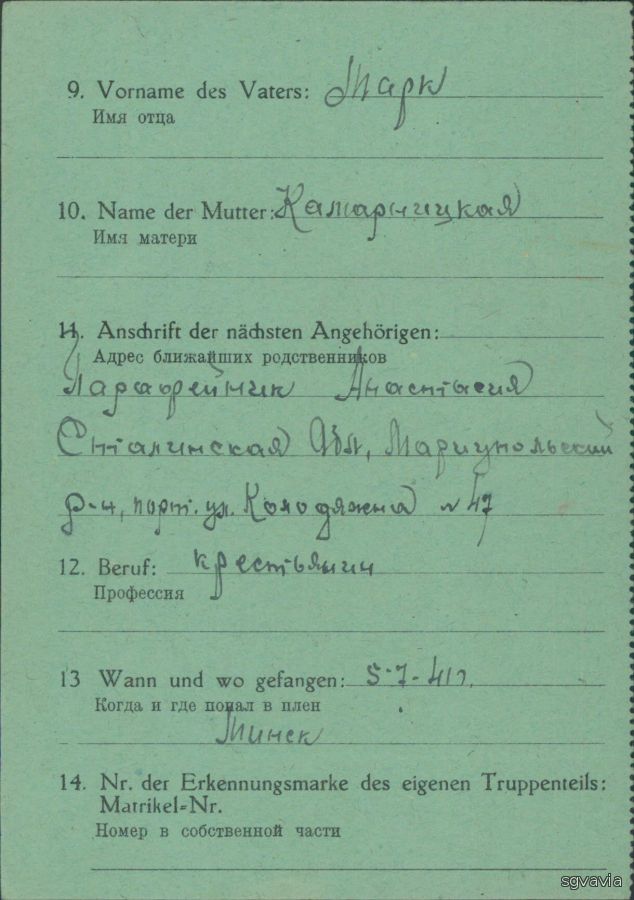 9. Vorname des Vaters: Марк
Имя отца
10. Name der Mutter: Камарницкая
Имя матери
11. Anschrift der nächsten Angehörigen:
Адрес ближайших родственников
Парафейник Анастасия
Сталинская Обл, Мариупольский
р-н, порт. ул. Колодяжна № 47
12. Beruf: крестьянин
Профессия
13 Wann und wo gefangen: 5-7-41г.
Когда и где попал в плен
Минск
14. Nr. der Erkennungsmarke des eigenen Truppenteils:
Matrikel=Nr.
Номер в собственной части
sgvavia